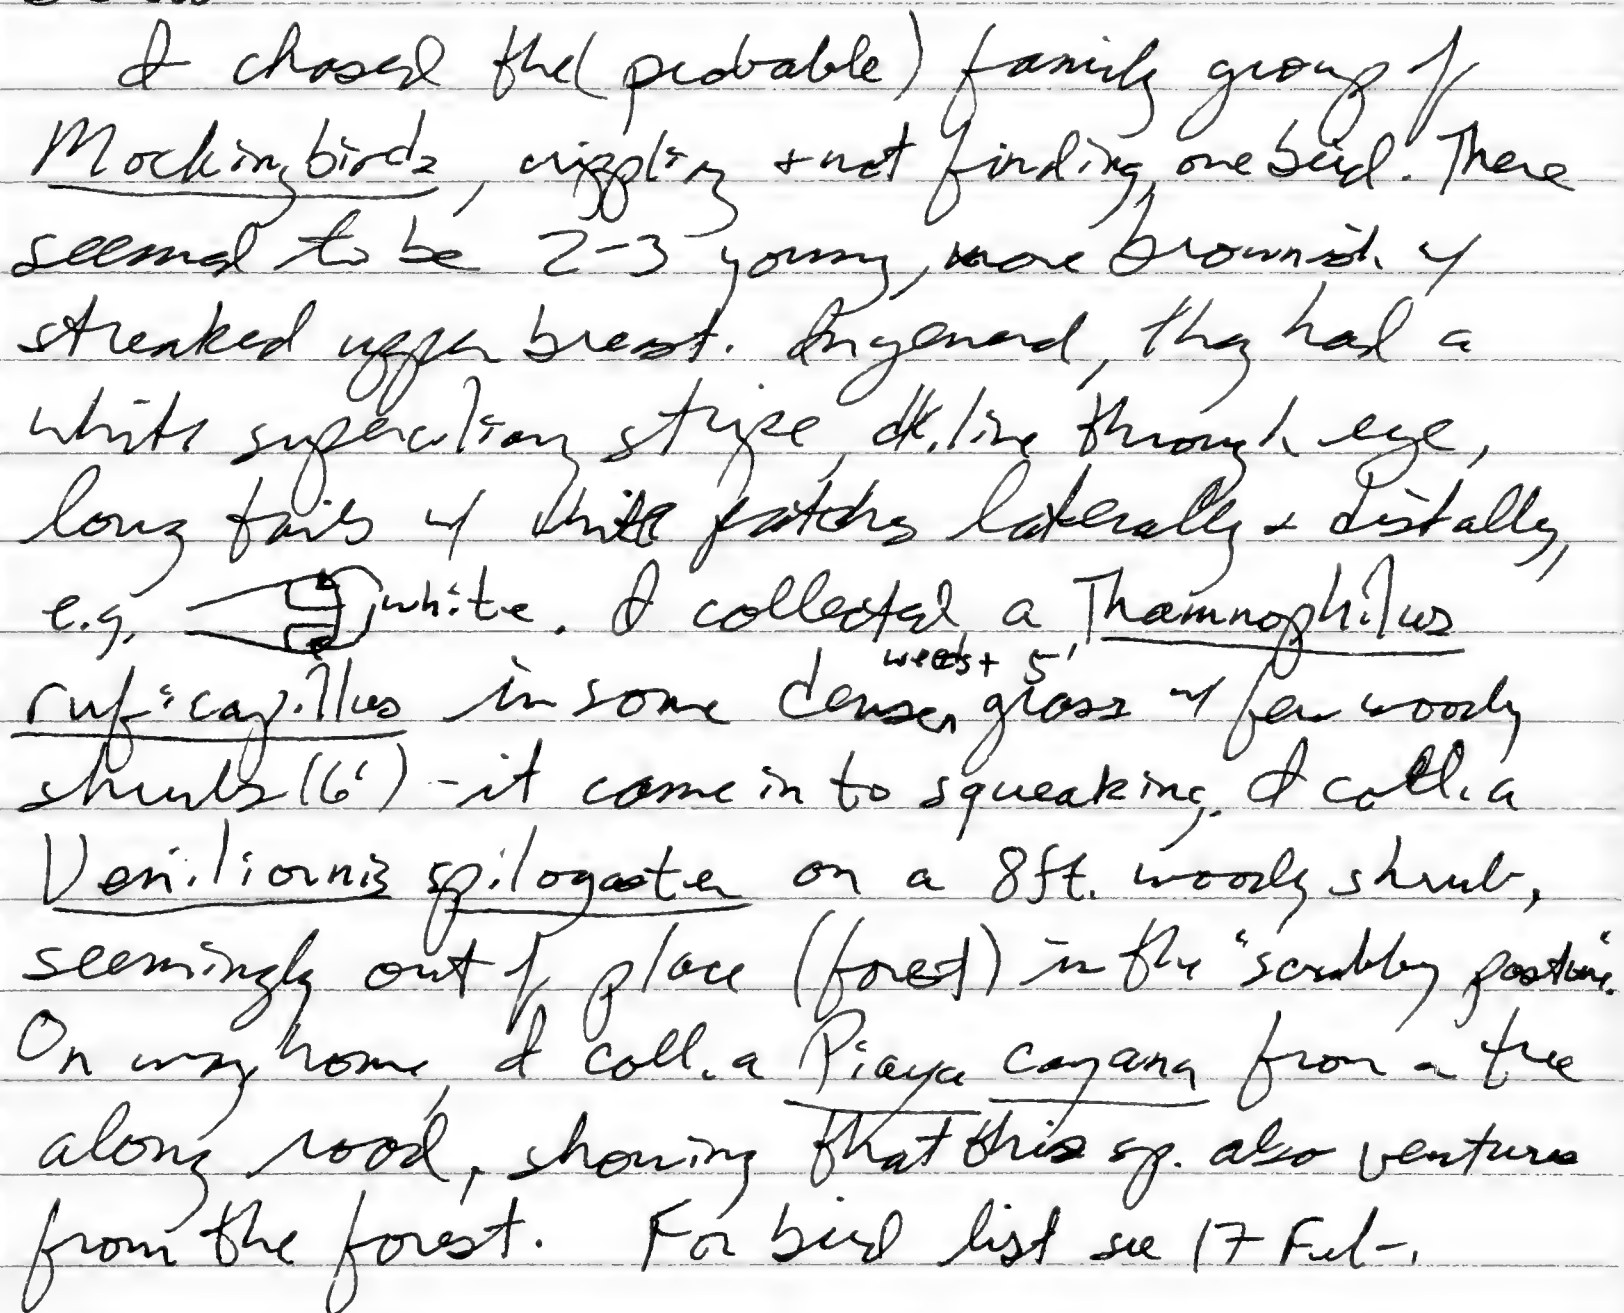 I chased the (probable) family group of
Mockingbirds, crippling + not finding one bird. There
seemed to be 2-3 young, more brownish w/
streaked upper breast. In general, they had a
white superciliary stripe, dk. line through eye,
long tails w/ white patches laterally + distally,
e.g. white. I collected a Thamnophilus
weeds + 5'
ruficapillus in some dense grass w/ few woody
shrubs (6') - it came in to squeaking. I coll. a
Veniliornis spilogaster on a 8 ft. woody shrub,
seemingly out of place (forest) in the "scrubby pasture".
On way home, I coll. a Piaya cayana from a tree
along road, showing that this sp. also ventures
from the forest. For bird list see 17 Feb.